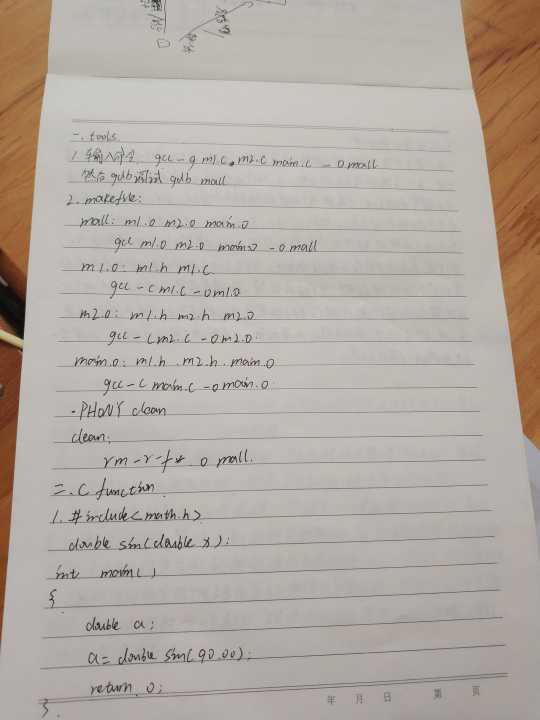 一. tools
1 输入命令 gcc -g m1.c m2.c main.c -o mall
然后gdb调试 gdb mall
2. makefile:
mall: m1.o m2.o main.o
gcc m1.o m2.o main.o -o mall
m1.o: m1.h m1.c
gcc -c m1.c -o m1.o
m2.o: m1.h m2.h m2.o
gcc -c m2.c -o m2.o
main.o: m1.h m2.h main.o
gcc -c main.c -o main.o
.PHONY clean
clean:
rm -r -f *.o mall.
二. C function
1. #include<math.h>
double sin(double x);
int main()
{
double a;
a = double sin(90.00);
return 0;
}.
年 月 日 第 页